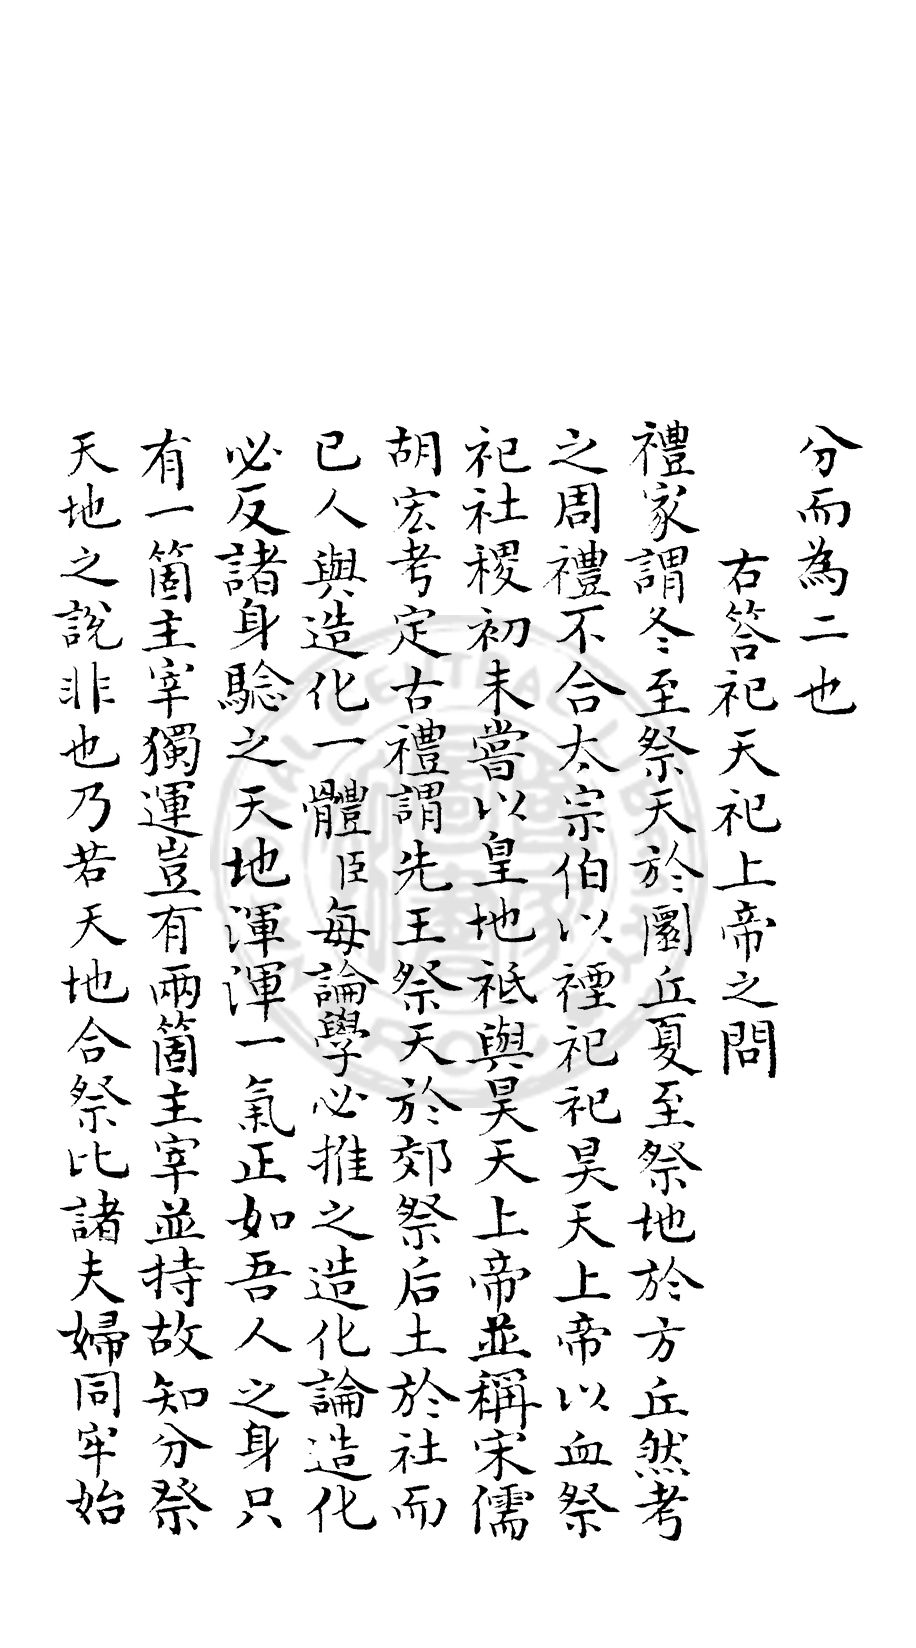 分而為二也
右答祀天祀上帝之問
禮家謂冬至祭天於圜丘夏至祭地於方丘然考
之周禮不合太宗伯以禋祀祀昊天上帝以血祭
祀社稷初未嘗以皇地祗與昊天上帝並稱宋儒
胡宏考定古禮謂先王祭天於郊祭后土於社而
已人與造化一體臣每論學必推之造化論造化
必反諸身騐之天地渾渾一氣正如吾人之身只
有一箇主宰獨運豈有兩箇主宰並持故知分祭
天地之說非也乃若天地合祭比諸夫婦同牢始